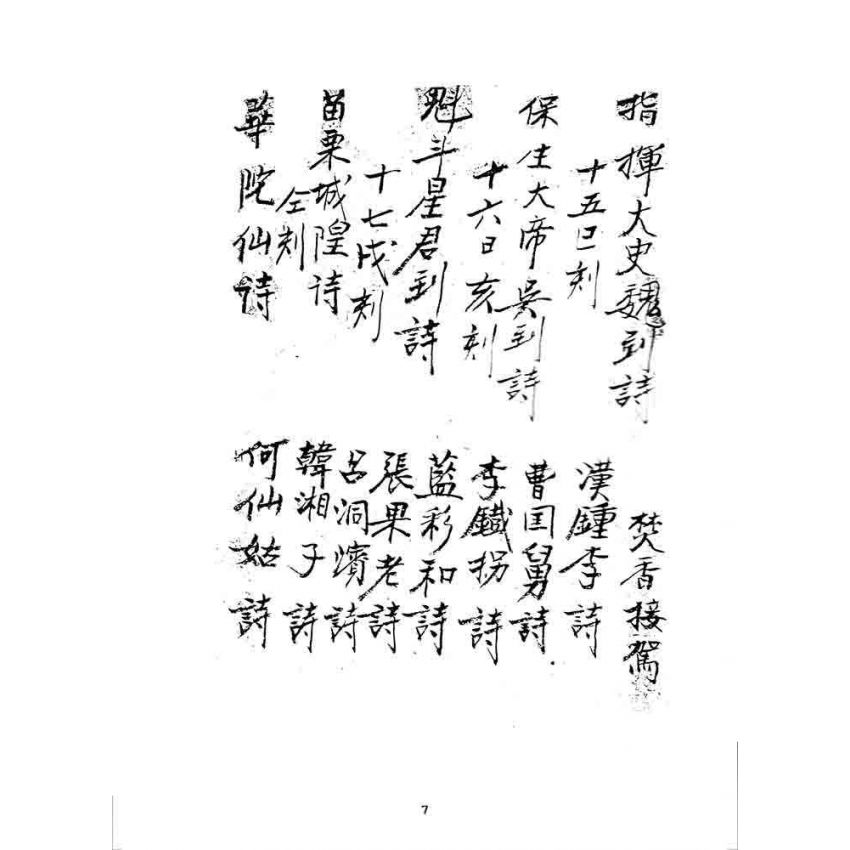 指揮大史魏到詩
十五巳刻
保生大帝吳到詩
十六日亥刻
魁斗星君到詩
十七戌刻
苗栗城隍詩
仝刻
華陀仙詩
焚香接駕
漢鍾李詩
曹囯舅詩
李鐵拐詩
藍彩和詩
張果老詩
呂洞濱詩
韓湘子詩
何仙姑詩
7